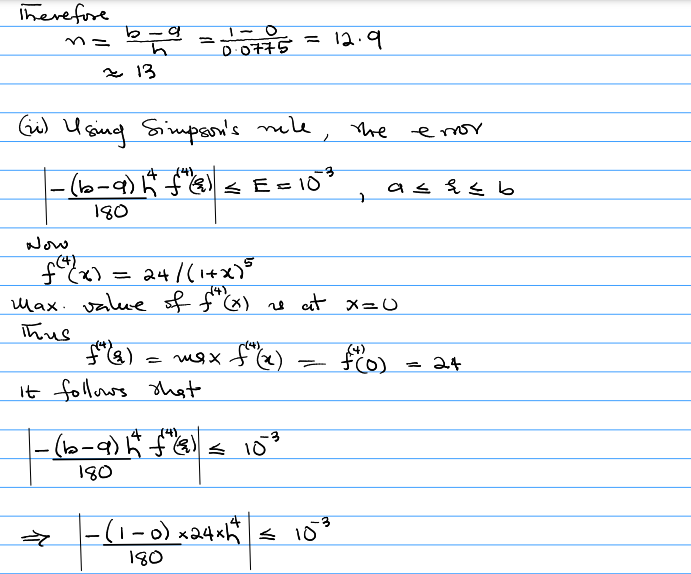 Therefore
n = (b-a)/h = (1-0)/0.0775 = 12.9
≈ 13
(ii) Using Simpson's rule, the error
|-(b-a) h⁴ f⁽⁴⁾(ξ)/180| ≤ E = 10⁻³ , a ≤ ξ ≤ b
Now
f⁽⁴⁾(x) = 24/(1+x)⁵
Max. value of f⁽⁴⁾(x) is at x=0
Thus
f⁽⁴⁾(ξ) = max f⁽⁴⁾(x) = f⁽⁴⁾(0) = 24
It follows that
|-(b-a) h⁴ f⁽⁴⁾(ξ)/180| ≤ 10⁻³
⇒ |-(1-0)×24×h⁴/180| ≤ 10⁻³